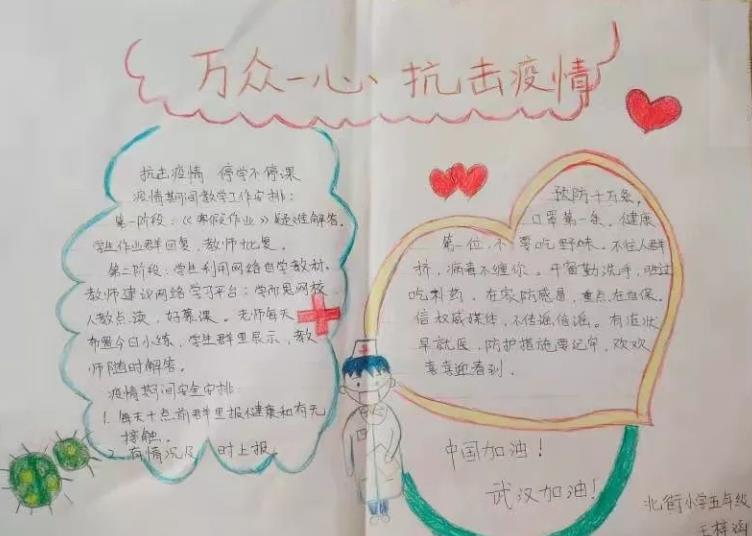 万众一心、抗击疫情
抗击疫情 停学不停课
疫情期间教学工作安排：
第一阶段：《寒假作业》疑难解答。
学生作业群回复，教师批复。
第二阶段：学生利用网络自学教材。
教师建议网络学习平台：学而思网校
人教点读，好慕课。老师每天
布置今日小练，学生群里展示，教
师随时解答。
疫情期间安全安排：
1. 每天十点前群里报健康和有无
接触。
2. 有情况及时上报。
预防千万条，
口罩第一条，健康
第一位，不要吃野味，不往人群
挤，病毒不缠你。开窗勤洗手，
吃制药。在家防感冒，重点在自保。
信权威媒体，不传谣信谣。有症状
早就医，防护措施要记牢，欢欢
喜喜迎春到．
中国加油！
武汉加油！
北街小学五年级
王梓涵